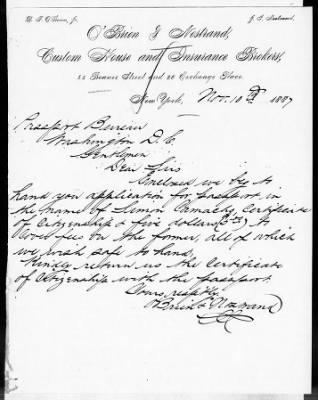 W. T. O'Brien, Jr. J. S. Nostrand.
O'Brien & Nostrand,
Custom House and Insurance Brokers,
22 Beaver Street and 20 Exchange Place
New York, Nov. 10th 1887
Passport Bureau
Washington D. C.
Gentlemen
Dear Sirs
Enclosed we beg to
hand you application for passport in
the name of Simon Camacho Certificate
of Citizenship & five dollars to
cover fees on the former, all of which
we wish safe to hand,
Kindly return us the Certificate
of Citizenship with the passport
Yours respctfly
O'Brien & Nostrand